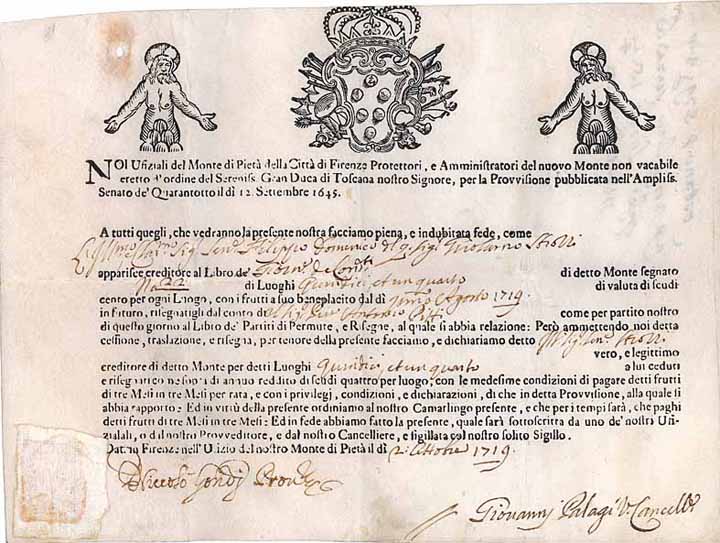 NOI Ufiziali del Monte di Pietà della Città di Firenze Protettori, e Amministratori del nuovo Monte non vacabile
eretto d'ordine del Sereniss. Gran Duca di Toscana nostro Signore, per la Provvisione pubblicata nell'Ampliss.
Senato de' Quarantotto il dì 12. Settembre 1645.
A tutti quegli, che vedranno la presente nostra facciamo piena, e indubitata fede, come
Sig. Sen. Filippo Domenico del q. Sig.
apparisce creditore al Libro de'
No. 22 di Luoghi Quindici, et un quarto di detto Monte segnato
di valuta di scudi
cento per ogni Luogo, con i frutti a suo beneplacito dal dì primo Agosto 1719.
in futuro, risegnatigli dal conto di Antonio come per partito nostro
di questo giorno al Libro de' Partiti di Permute, e Risegne, al quale si abbia relazione: Però ammettendo noi detta
cessione, traslazione, e risegna, per tenore della presente facciamo, e dichiariamo detto
vero, e legittimo
creditore di detto Monte per detti Luoghi Quindici, et un quarto a lui ceduti
e risegnati co ne sopra di annuo reddito di scudi quattro per luogo; con le medesime condizioni di pagare detti frutti
di tre Mesi in tre Mesi per rata, e con i privilegj, condizioni, e dichiarazioni, di che in detta Provvisione, alla quale si
abbia rapporto: Ed in virtù della presente ordiniamo al nostro Camarlingo presente, e che per i tempi sarà, che paghi
detti frutti di tre Mesi in tre Mesi: Ed in fede abbiamo fatto la presente, quale sarà sottoscritta da uno de' nostri Ufi-
ziali, o dal nostro Provveditore, e dal nostro Cancelliere, e sigillata col nostro solito Sigillo.
Dat. in Firenze nell'Ufizio del nostro Monte di Pietà il dì 2. Ottobre 1719.
Niccolò Gondj Provre
Giovannj Palagi V. Cancell.